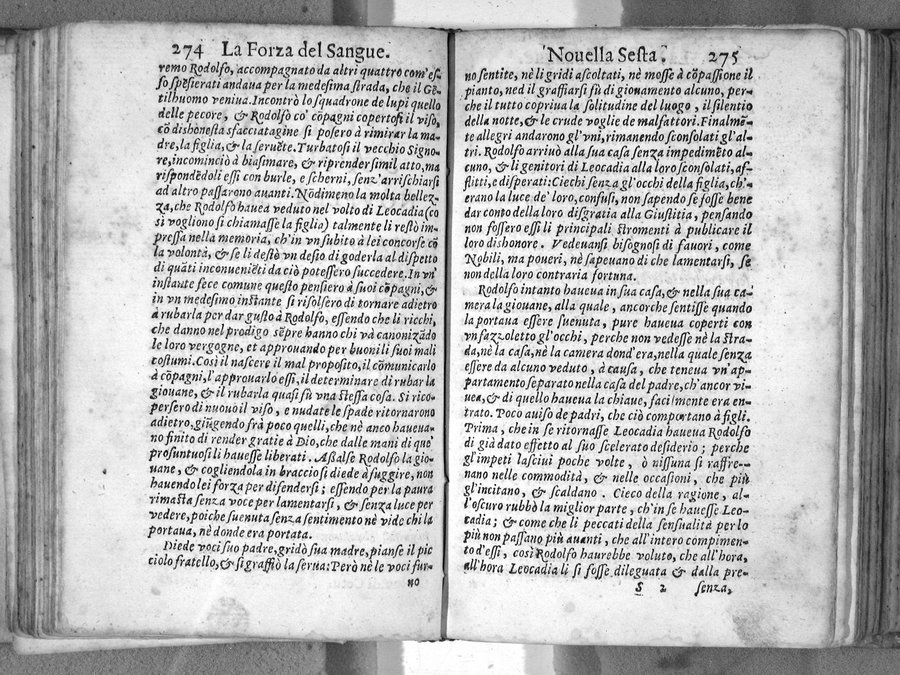 274 La Forza del Sangue.
remo Rodolfo, accompagnato da altri quattro com'es-
so spẽsierati andaua per la medesima strada, che il Gẽ-
tilhuomo veniua. Incontrò lo squadrone de lupi quello
delle pecore, & Rodolfo co' cõpagni copertosi il viso,
cõ dishonesta sfacciatagine si posero à rimirar la ma-
dre, la figlia, & la seruẽte. Turbatosi il vecchio Signo-
re, incominciò à biasimare, & riprender simil atto, ma
rispondẽdoli essi con burle, e scherni, senz'arrischiarsi
ad altro passarono auanti. Nõdimeno la molta bellez-
za, che Rodolfo hauea veduto nel volto di Leocadia (co
sì vogliono si chiamasse la figlia) talmente li restò im-
pressa nella memoria, ch'in vn subito à lei concorse cõ
la volontà, & se li destò vn desio di goderla al dispetto
di quãti inconueniẽti da ciò potessero succedere. In vn'
instante fece comune questo pensiero à suoi cõpagni, &
in vn medesimo instante si risolsero di tornare adietro
à rubarla per dar gusto à Rodolfo, essendo che li ricchi,
che danno nel prodigo sẽpre hanno chi và canonizãdo
le loro vergogne, et approuando per buoni li suoi mali
costumi. Così il nascere il mal proposito, il cõmunicarlo
à cõpagni, l'approuarlo essi, il determinare di rubar la
giouane, & il rubarla quasi fù vna stessa cosa. Si rico-
persero di nuouo il viso, e nudate le spade ritornarono
adietro, giũgendo frà poco quelli, che nè anco haueua-
no finito di render gratie à Dio, che dalle mani di que'
prosuntuosi li hauesse liberati. Assalse Rodolfo la gio-
uane, & cogliendola in braccio si diede à fuggire, non
hauendo lei forza per difendersi; essendo per la paura
rimasta senza voce per lamentarsi, & senza luce per
vedere, poiche suenuta senza sentimento nè vide chi la
portaua, nè donde era portata.
Diede voci suo padre, gridò sua madre, pianse il pic
ciolo fratello, & si graffiò la serua: Però nè le voci fur-
no
Nouella Sesta. 275
no sentite, nè li gridi ascoltati, nè mosse à cõpassione il
pianto, ned il graffiarsi fù di giouamento alcuno, per-
che il tutto copriua la solitudine del luogo, il silentio
della notte, & le crude voglie de malfattori. Finalmẽ-
te allegri andarono gl'vni, rimanendo sconsolati gl'al-
tri. Rodolfo arriuò alla sua casa senza impedimẽto al-
cuno, & li genitori di Leocadia alla loro sconsolati, af-
flitti, e disperati: Ciechi senza gl'occhi della figlia, ch'-
erano la luce de' loro, confusi, non sapendo se fosse bene
dar conto della loro disgratia alla Giustitia, pensando
non fossero essi li principali stromenti à publicare il
loro dishonore. Vedeuansi bisognosi di fauori, come
Nobili, ma poueri, nè sapeuano di che lamentarsi, se
non della loro contraria fortuna.
Rodolfo intanto haueua in sua casa, & nella sua ca-
mera la giouane, alla quale, ancorche sentisse quando
la portaua essere suenuta, pure haueua coperti con
vn fazzoletto gl'occhi, perche non vedesse nè la stra-
da, nè la casa, nè la camera dond'era, nella quale senza
essere da alcuno veduto, à causa, che teneua vn'ap-
partamento separato nella casa del padre, ch'ancor vi-
uea, & di quello haueua la chiaue, facilmente era en-
trato. Poco auiso de padri, che ciò comportano à figli.
Prima, che in se ritornasse Leocadia haueua Rodolfo
di già dato effetto al suo scelerato desiderio; perche
gl'impeti lasciui poche volte, ò nissuna si raffre-
nano nelle commodità, & nelle occasioni, che più
gl'incitano, & scaldano. Cieco della ragione, al-
l'oscuro rubbò la miglior parte, ch'in se hauesse Leo-
cadia; & come che li peccati della sensualità per lo
più non passano più auanti, che all'intero compimen-
to d'essi, così Rodolfo haurebbe voluto, che all'hora,
all'hora Leocadia li si fosse dileguata & dalla pre-
S 2 senza,